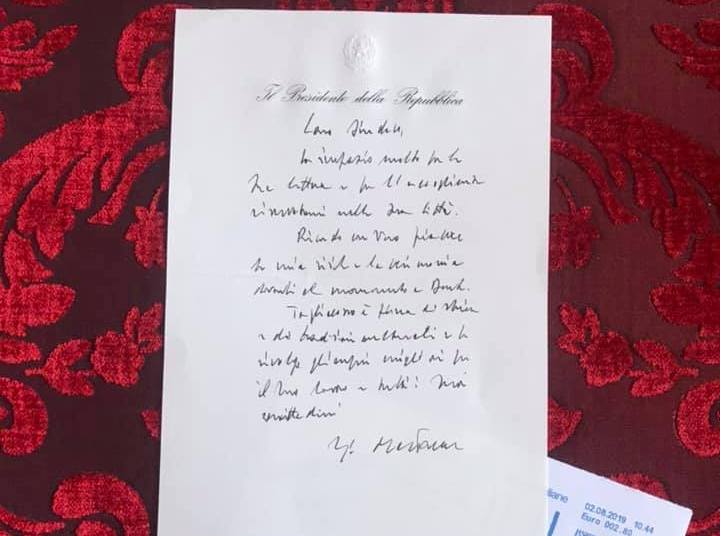 Il Presidente della Repubblica
Caro Sindaco,
La ringrazio molto per la
Sua lettera e per l'accoglienza
nella Sua città.
Ricordo con vivo piacere
la mia visita e la cerimonia
davanti al monumento a Dante.
Tagliacozzo è piena di storia
e di tradizioni culturali e Le
rivolgo gli auguri migliori per
il Suo lavoro e tutti i Suoi
concittadini
liane 02.08.2019 10.44
Euro 002.80